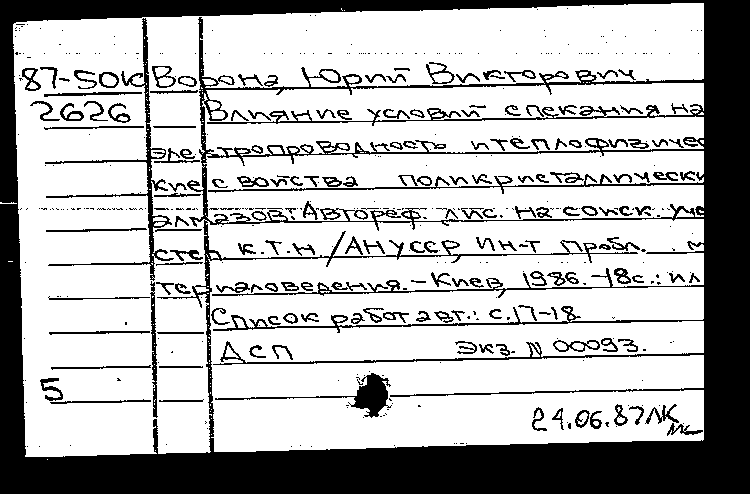 87-50к Ворона, Юрий Викторович.
2626 Влияние условий спекания на
электропроводность и теплофизичес
кие свойства поликристаллически
алмазов: Автореф. дис. на соиск. уче
степ к.т.н. / АН УССР, Ин-т пробл. м
териаловедения. - Киев, 1986. - 18с.: ил
Список работ авт.: с. 17-18.
ДСП Экз. N 00093.
5
24.06.87 ЛК